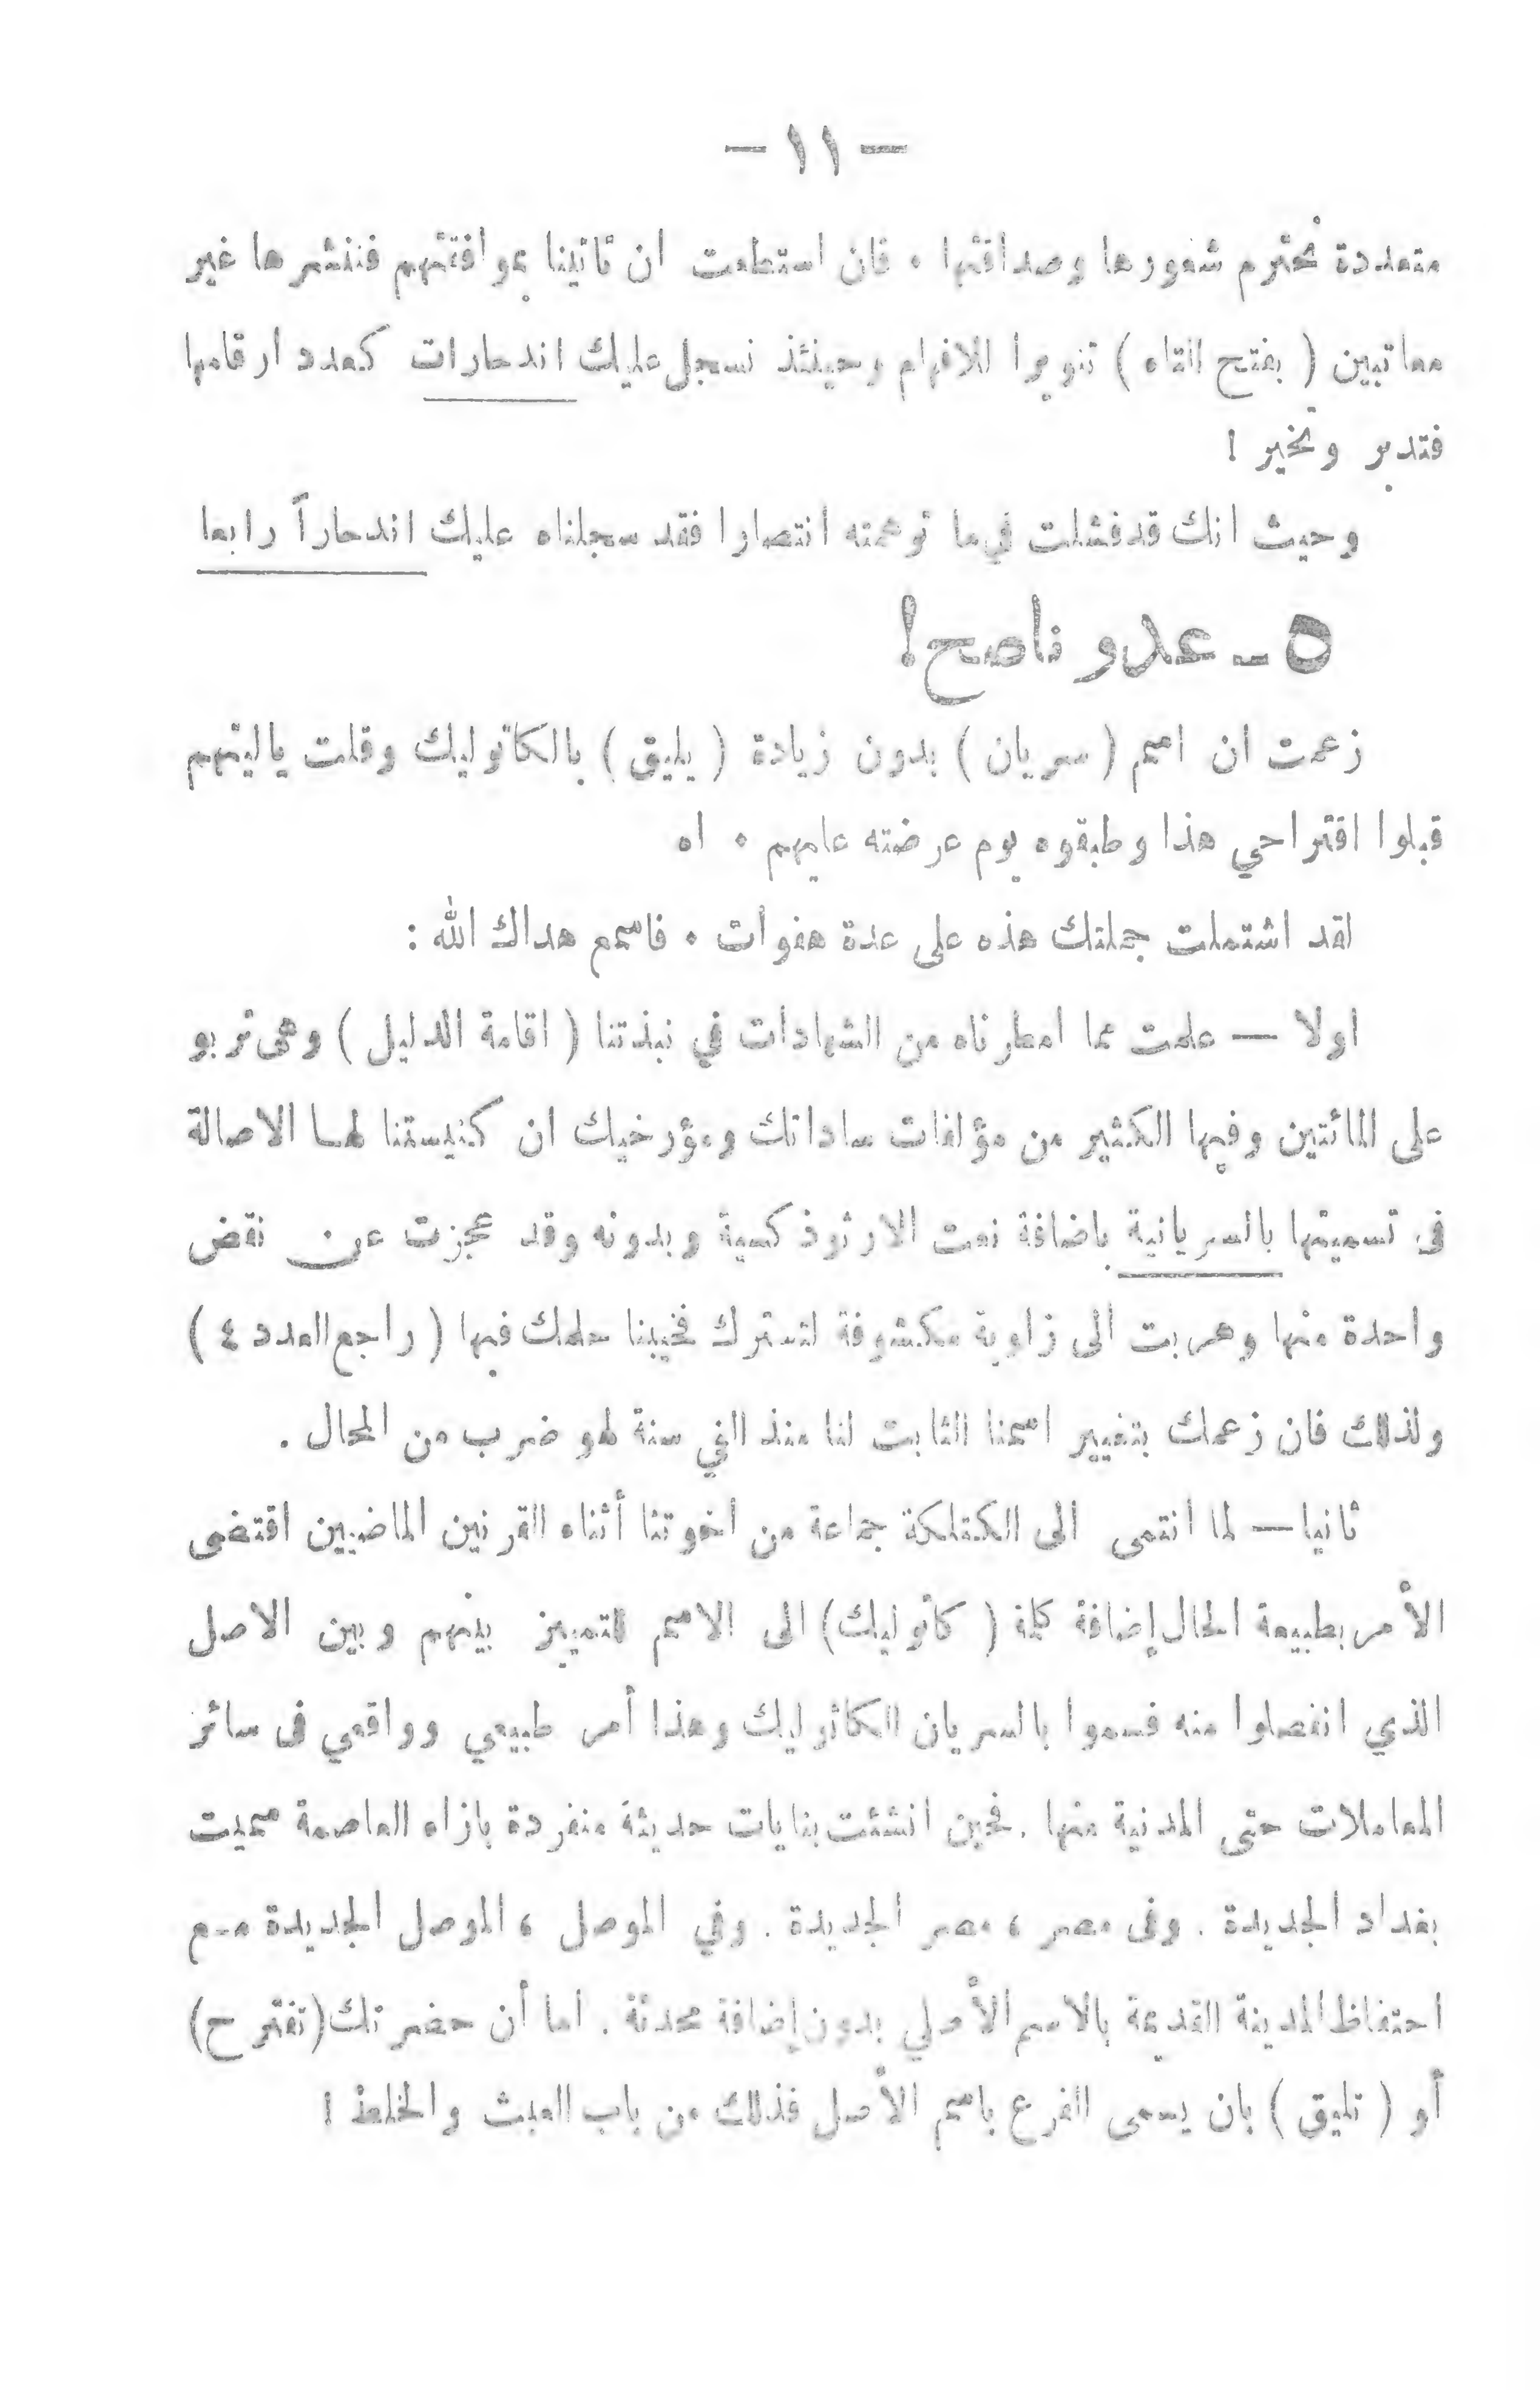 — ١١ —
متعددة نحترم شعورها وصداقتها . فان استطعت ان تاتينا بموافقتهم فننشرها غير
معاتبين ( بفتح التاء ) تنويرا للافهام وحينئذ نسجل عليك اندحارات كعدد ارقامها
فتدبر وتخير !
وحيث انك قد فشلت في ما توهمته انتصارا فقد سجلناه عليك اندحاراً رابعا
٥ - عدو ناصح !
زعمت ان اسم ( سريان ) بدون زيادة ( يليق ) بالكاثوليك وقلت ياليتهم
قبلوا اقتراحي هذا وطبقوه يوم عرضته عليهم . اه
لقد اشتملت جملتك هذه على عدة هفوات . فاسمع هداك الله :
اولا — علمت مما امطرناه من الشهادات في نبذتنا ( اقامة الدليل ) وهى تربو
على المائتين وفيها الكثير من مؤلفات ساداتك ومؤرخيك ان كنيستنا لها الاصالة
فى تسميتها بالسريانية باضافة نعت الارثوذكسية وبدونه وقد عجزت عن نقض
واحدة منها وهربت الى زاوية مكشوفة لتسترك فخيبنا حلمك فيها ( راجع العدد ٤ )
ولذلك فان زعمك بتغيير اسمنا الثابت لنا منذ الفي سنة لهو ضرب من المحال .
ثانيا — لما انتمى الى الكثلكة جماعة من اخوتنا أثناء القرنين الماضيين اقتضى
الأمر بطبيعة الحال إضافة كلمة ( كاثوليك ) الى الاسم للتمييز بينهم وبين الاصل
الذي انفصلوا منه فسموا بالسريان الكاثوليك وهذا أمر طبيعي وواقعي فى سائر
المعاملات حتى المدنية منها . فحين انشئت بنايات حديثة منفردة بازاء العاصمة سميت
بغداد الجديدة . وفى مصر ، مصر الجديدة . وفي الموصل ، الموصل الجديدة مع
احتفاظ المدينة القديمة بالاسم الأصلي بدون إضافة محدثة . اما أن حضرتك (تقترح)
أو ( تليق ) بان يسمى الفرع باسم الأصل فذلك من باب العبث والخلط !